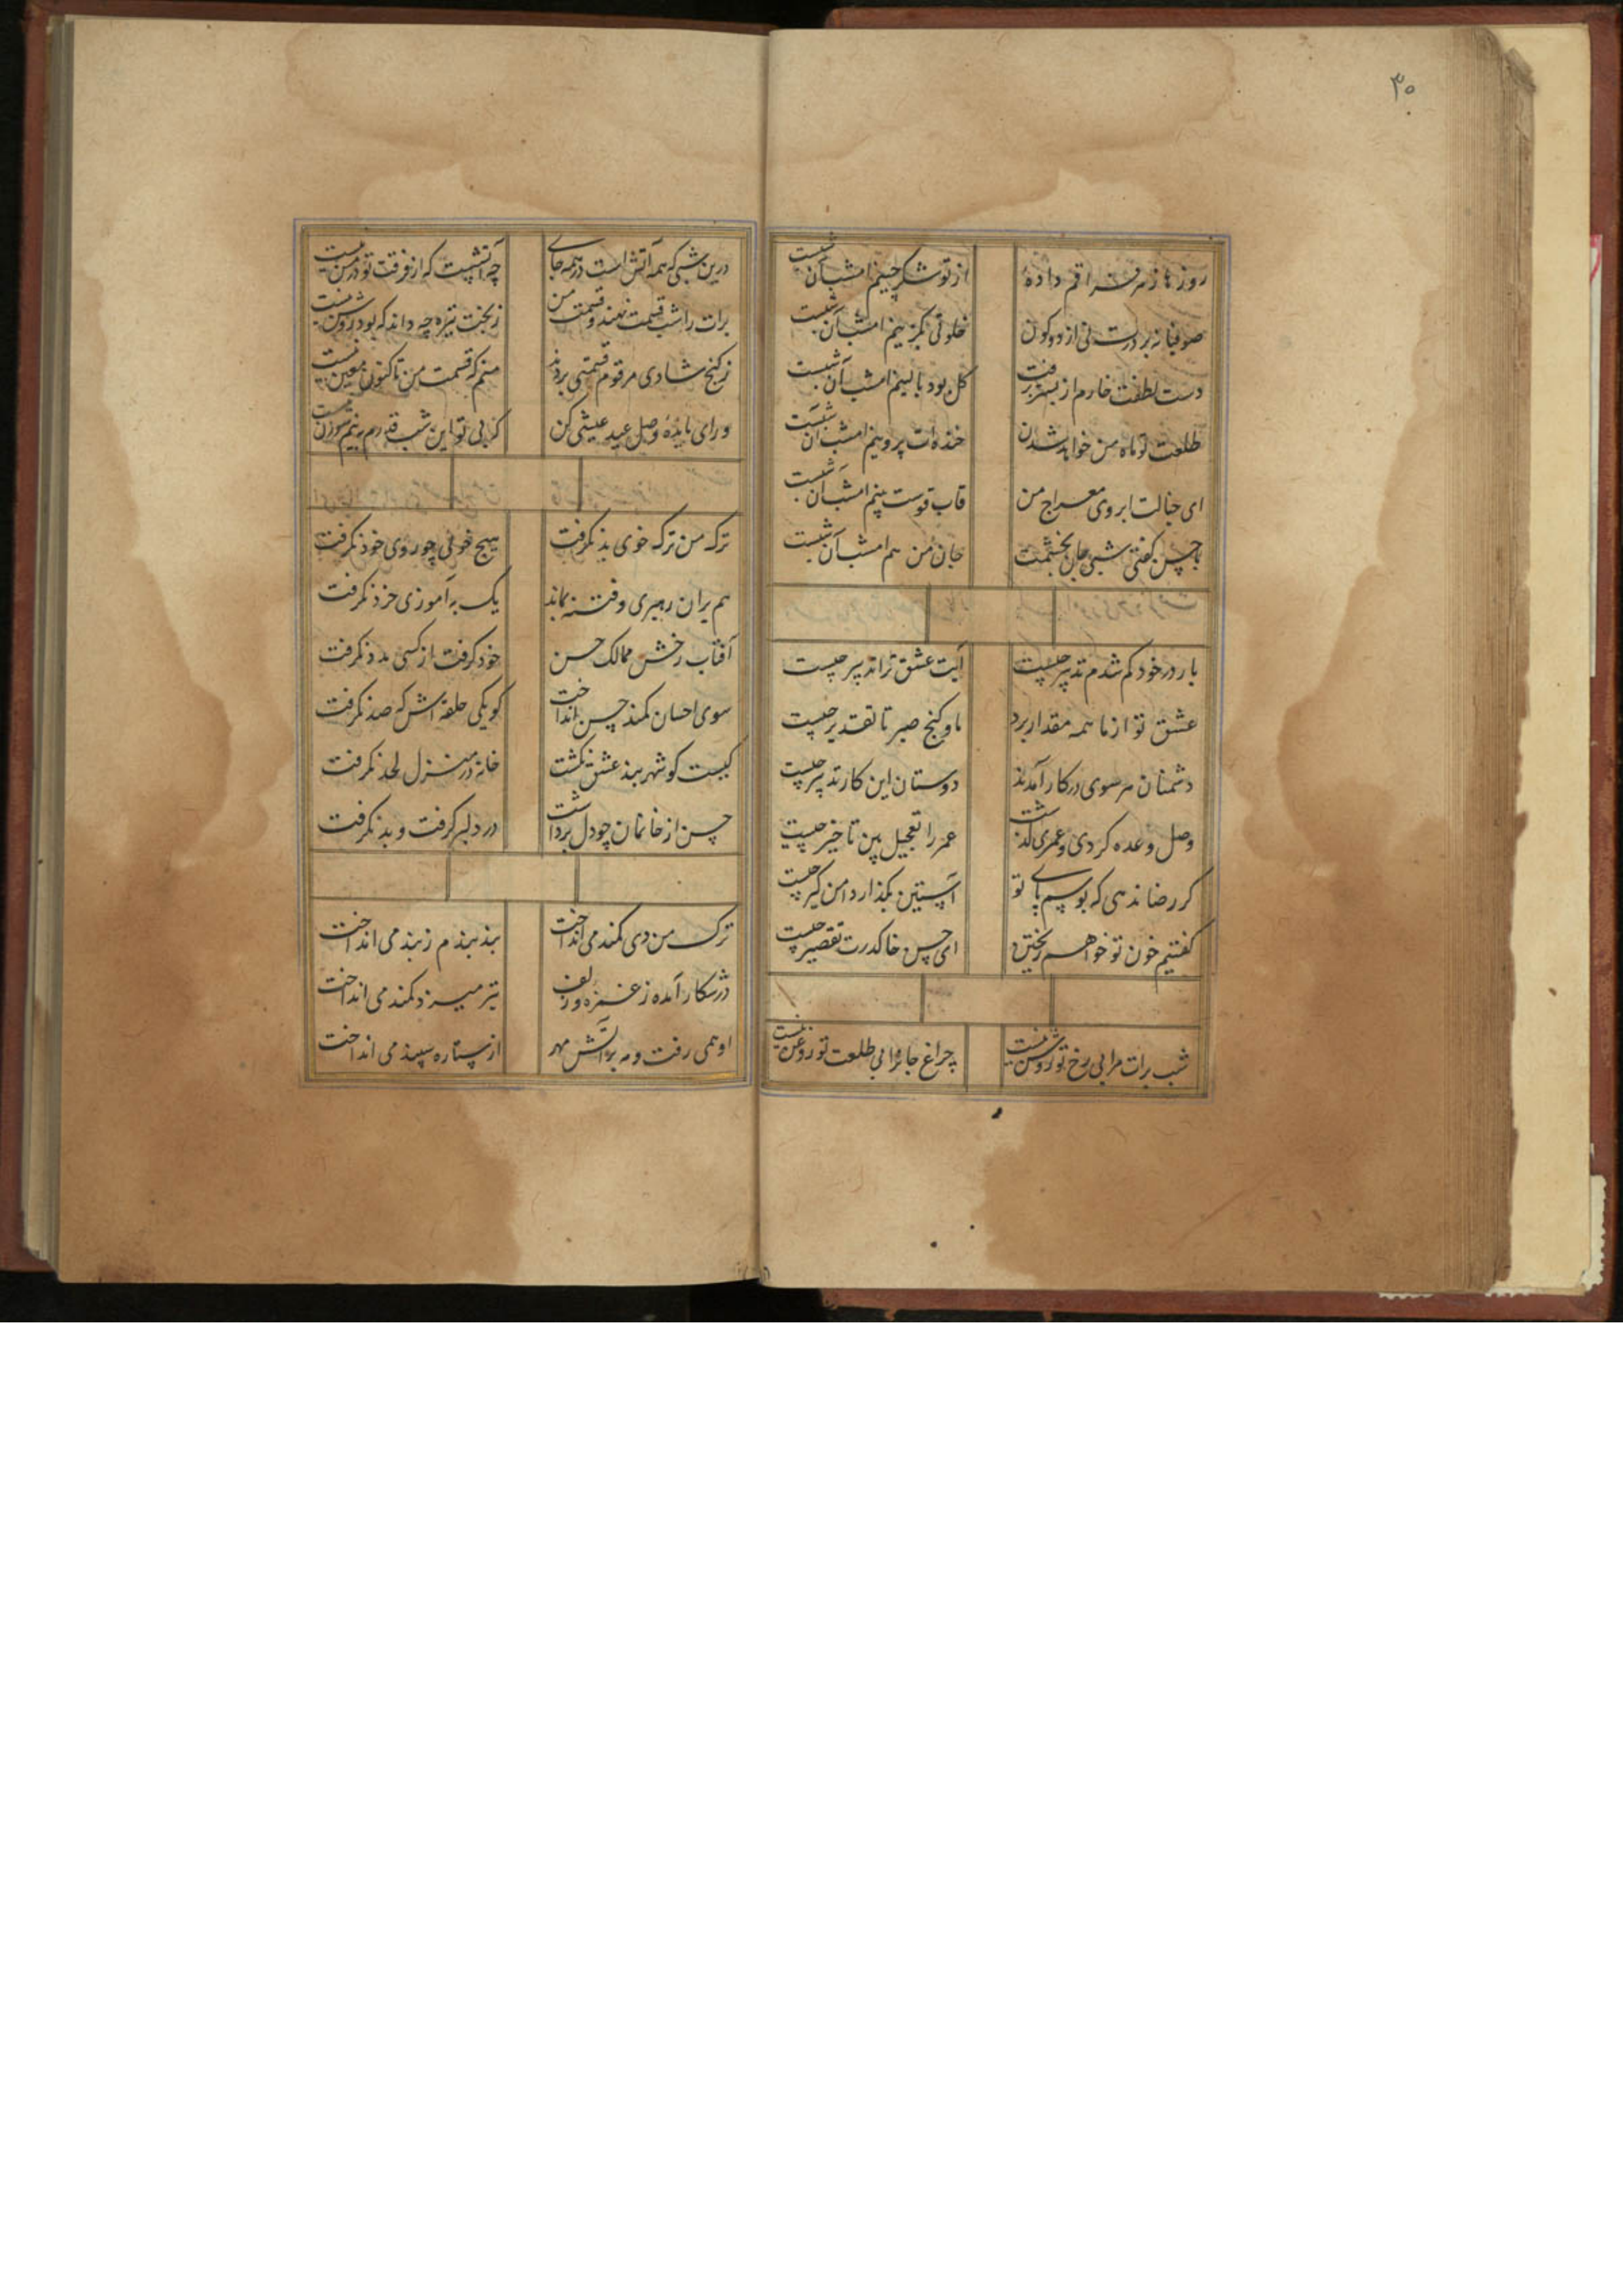 ۳۰
روزها زهر فراقم داده از تو شکر چینم امشب آن شبست
صوفیانه بر درت نی از دو کون خلوتی بگزینم امشب آن شبست
دست لطفت خارم از بستر برفت گل بود بالینم امشب آن شبست
طلعت تو ماه من خواهد شدن خنده‌ات پروینم امشب آن شبست
ای خیالت ابروی معراج من قاب قوست بینم امشب آن شبست
با حسن گفتی شبی جان بخشمت جان من هم امشب آن شبست
بار در خود کم شدم تدبیر چیست آیت عشق ترا تدبیر چیست
عشق تو از ما همه مقدار برد ما و کنج صبر تا تقدیر چیست
دشمنان هر سوی در کار آمدند دوستان این کار تدبیر چیست
وصل وعده کردی و عمری گذشت عمر را تعجیل بین تاخیر چیست
گر رضا ندهی که بوسم پای تو آستین بگذار دامن گیر چیست
گفتیم خون تو خواهم ریختن ای حسن خاک درت تقصیر چیست
شب برات مرا بی رخ تو روشن نیست چراغ جان مرا بی طلعت تو روغن نیست
درین شبی که همه آتش است در همه جای چه آتشیست که از فرقت تو در من نیست
برات را شب قسمت نهند و قسمت من ز بخت تیره چه داند که بود روشن نیست
ز گنج شادی هر قوم قسمتی بردند منم که قسمت من تا کنون معین نیست
ورای مایده وصل عید عیشی کن که بی تو این شب
ترک من ترک خوی بد نگرفت هیچ خوئی چو روی خود نگرفت
هم بران رهبری و فتنه بماند یک به آموزی خرد نگرفت
آفتاب رخش ممالک حسن خود گرفت از کسی مدد نگرفت
سوی احسان کمند حسن انداخت کو یکی حلقه اش که صد نگرفت
کیست کو شهربند عشق نگشت خانه در منزل لحد نگرفت
حسن از خانمان چو دل برداشت در دلبر گرفت و بد نگرفت
ترک من دی کمند می انداخت بند بندم ز بند می انداخت
در شکار آمده ز غمزه و زلف تیر میزد کمند می انداخت
او همی رفت و مه بر آتش مهر از ستاره سپند می انداخت